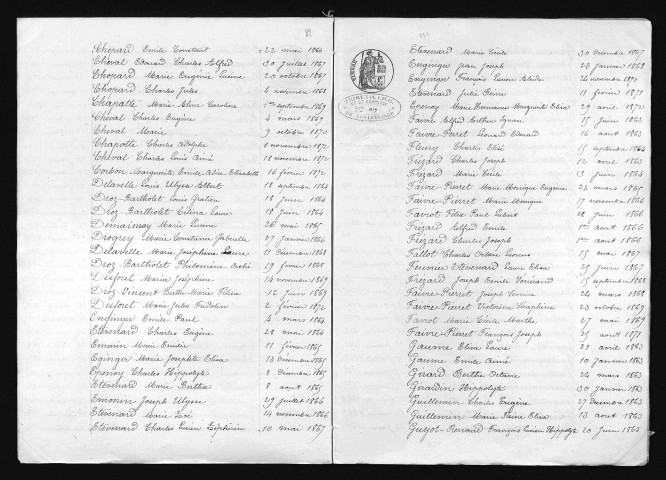 82
Chopard Emile Constant 22 mai 1866
Cheval Edouard Charles Alfred 30 juillet 1867
Chopard Marie Eugénie Lucine 20 octobre 1867
Chopard Charles Jules 4 novembre 1868
Chapatte Marie Aline Caroline 1er septembre 1869
Cheval Charles Eugène 4 mars 1869
Cheval Marie 9 octobre 1870
Chapotte Charles Adolphe 8 novembre 1872
Cheval Charles Louis Aimé 18 novembre 1872
Corbon Marguerite Emilie Alice Elisabeth 16 février 1872
Delavelle Louis Ulysse Albert 18 septembre 1864
Droz-Bartholet Louis Gratien 18 juin 1864
Droz-Bartholet Célina Laure 18 juin 1864
Domainoy Marie Lucine 26 mai 1865
Drogrey Marie Constance Gabrielle 27 janvier 1866
Delavelle Marie Joséphine Laure 11 Décembre 1868
Droz-Bartholet Philomène 19 février 1868
Disforet Marie Joséphine 14 novembre 1869
Droz-Vincent Berthe Marie Félicie 12 juin 1869
Disforet Marie Jules Fridolin 2 février 1872
Enginger Emile Paul 4 mars 1864
Etevenard Charles Eugène 28 mai 1864
Emonin Marie Emilie 11 février 1865
Eginger Marie Josephte Elisa 23 Décembre 1865
Epenoy Charles Hippolyte 8 Décembre 1865
Etevenard Marie Bertha 8 août 1865
Emonin Joseph Ulysse 29 juillet 1866
Etevenard Marie Zoé 14 novembre 1866
Etevenard Charles Lucien Zéphirin 10 mai 1867
Etevenard Marie Emile 30 décembre 1867
Enginger Jean Joseph 23 janvier 1868
Enginger François Lucien Alcide 26 novembre 1870
Etevenard Julie Reine 11 février 1871
Epenoy Marie Germaine Marguerite Elisa 29 avril 1872
Faivre Alfred Arthur Ignace 15 juin 1863
Faivre-Pierret Léonard Edouard 16 août 1863
Fleury Charles Elie 15 septembre 1864
Frézard Charles Joseph 12 avril 1863
Frézard Marie Cécile 13 juin 1864
Faivre-Pierret Marie Monique Eugénie 23 mars 1865
Faivre-Pierret Marie Monique 17 novembre 1866
Farrot Félix Paul 28 juin 1866
Frézard Alfred Emile 1er août 1866
Frézard Charles Joseph 1er août 1866
Fallot Charles Octave 15 mai 1867
Etevenard Laure Elisa 25 juin 1867
Frézard Joseph Emile 15 septembre 1868
Faivre-Pierret Joseph 24 mars 1868
Faivre-Pierret Victorine Séraphine 23 octobre 1869
Farrot Marie Cécile Marthe 27 mai 1869
Faivre-Pierret François Joseph 25 août 1871
Gaume Elisa Laure 21 avril 1863
Gaume Emile Aimé 10 janvier 1863
Girard Bertha Octavie 24 mars 1863
Girardin Hippolyte 30 janvier 1863
Guillemin Charles Eugène 27 Décembre 1863
Guillemin Marie Reine Elisa 13 août 1863
Guyot-Renaud François Lucien Hippolyte 20 juin 1863